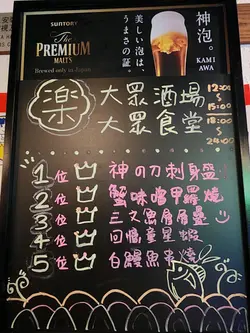 SUNTORY
The
PREMIUM
MALTS
Brewed only in Japan
神泡。
KAMI
AWA
美しい泡は、
うまさの証。
楽
大眾酒場
大眾食堂
12:00
15:00
18:00
24:00
1位 神の刀刺身盤
2位 蟹味噌甲羅燒
3位 三文魚肩肩薹
4位 回憶童星蝦
5位 白鰻魚串燒